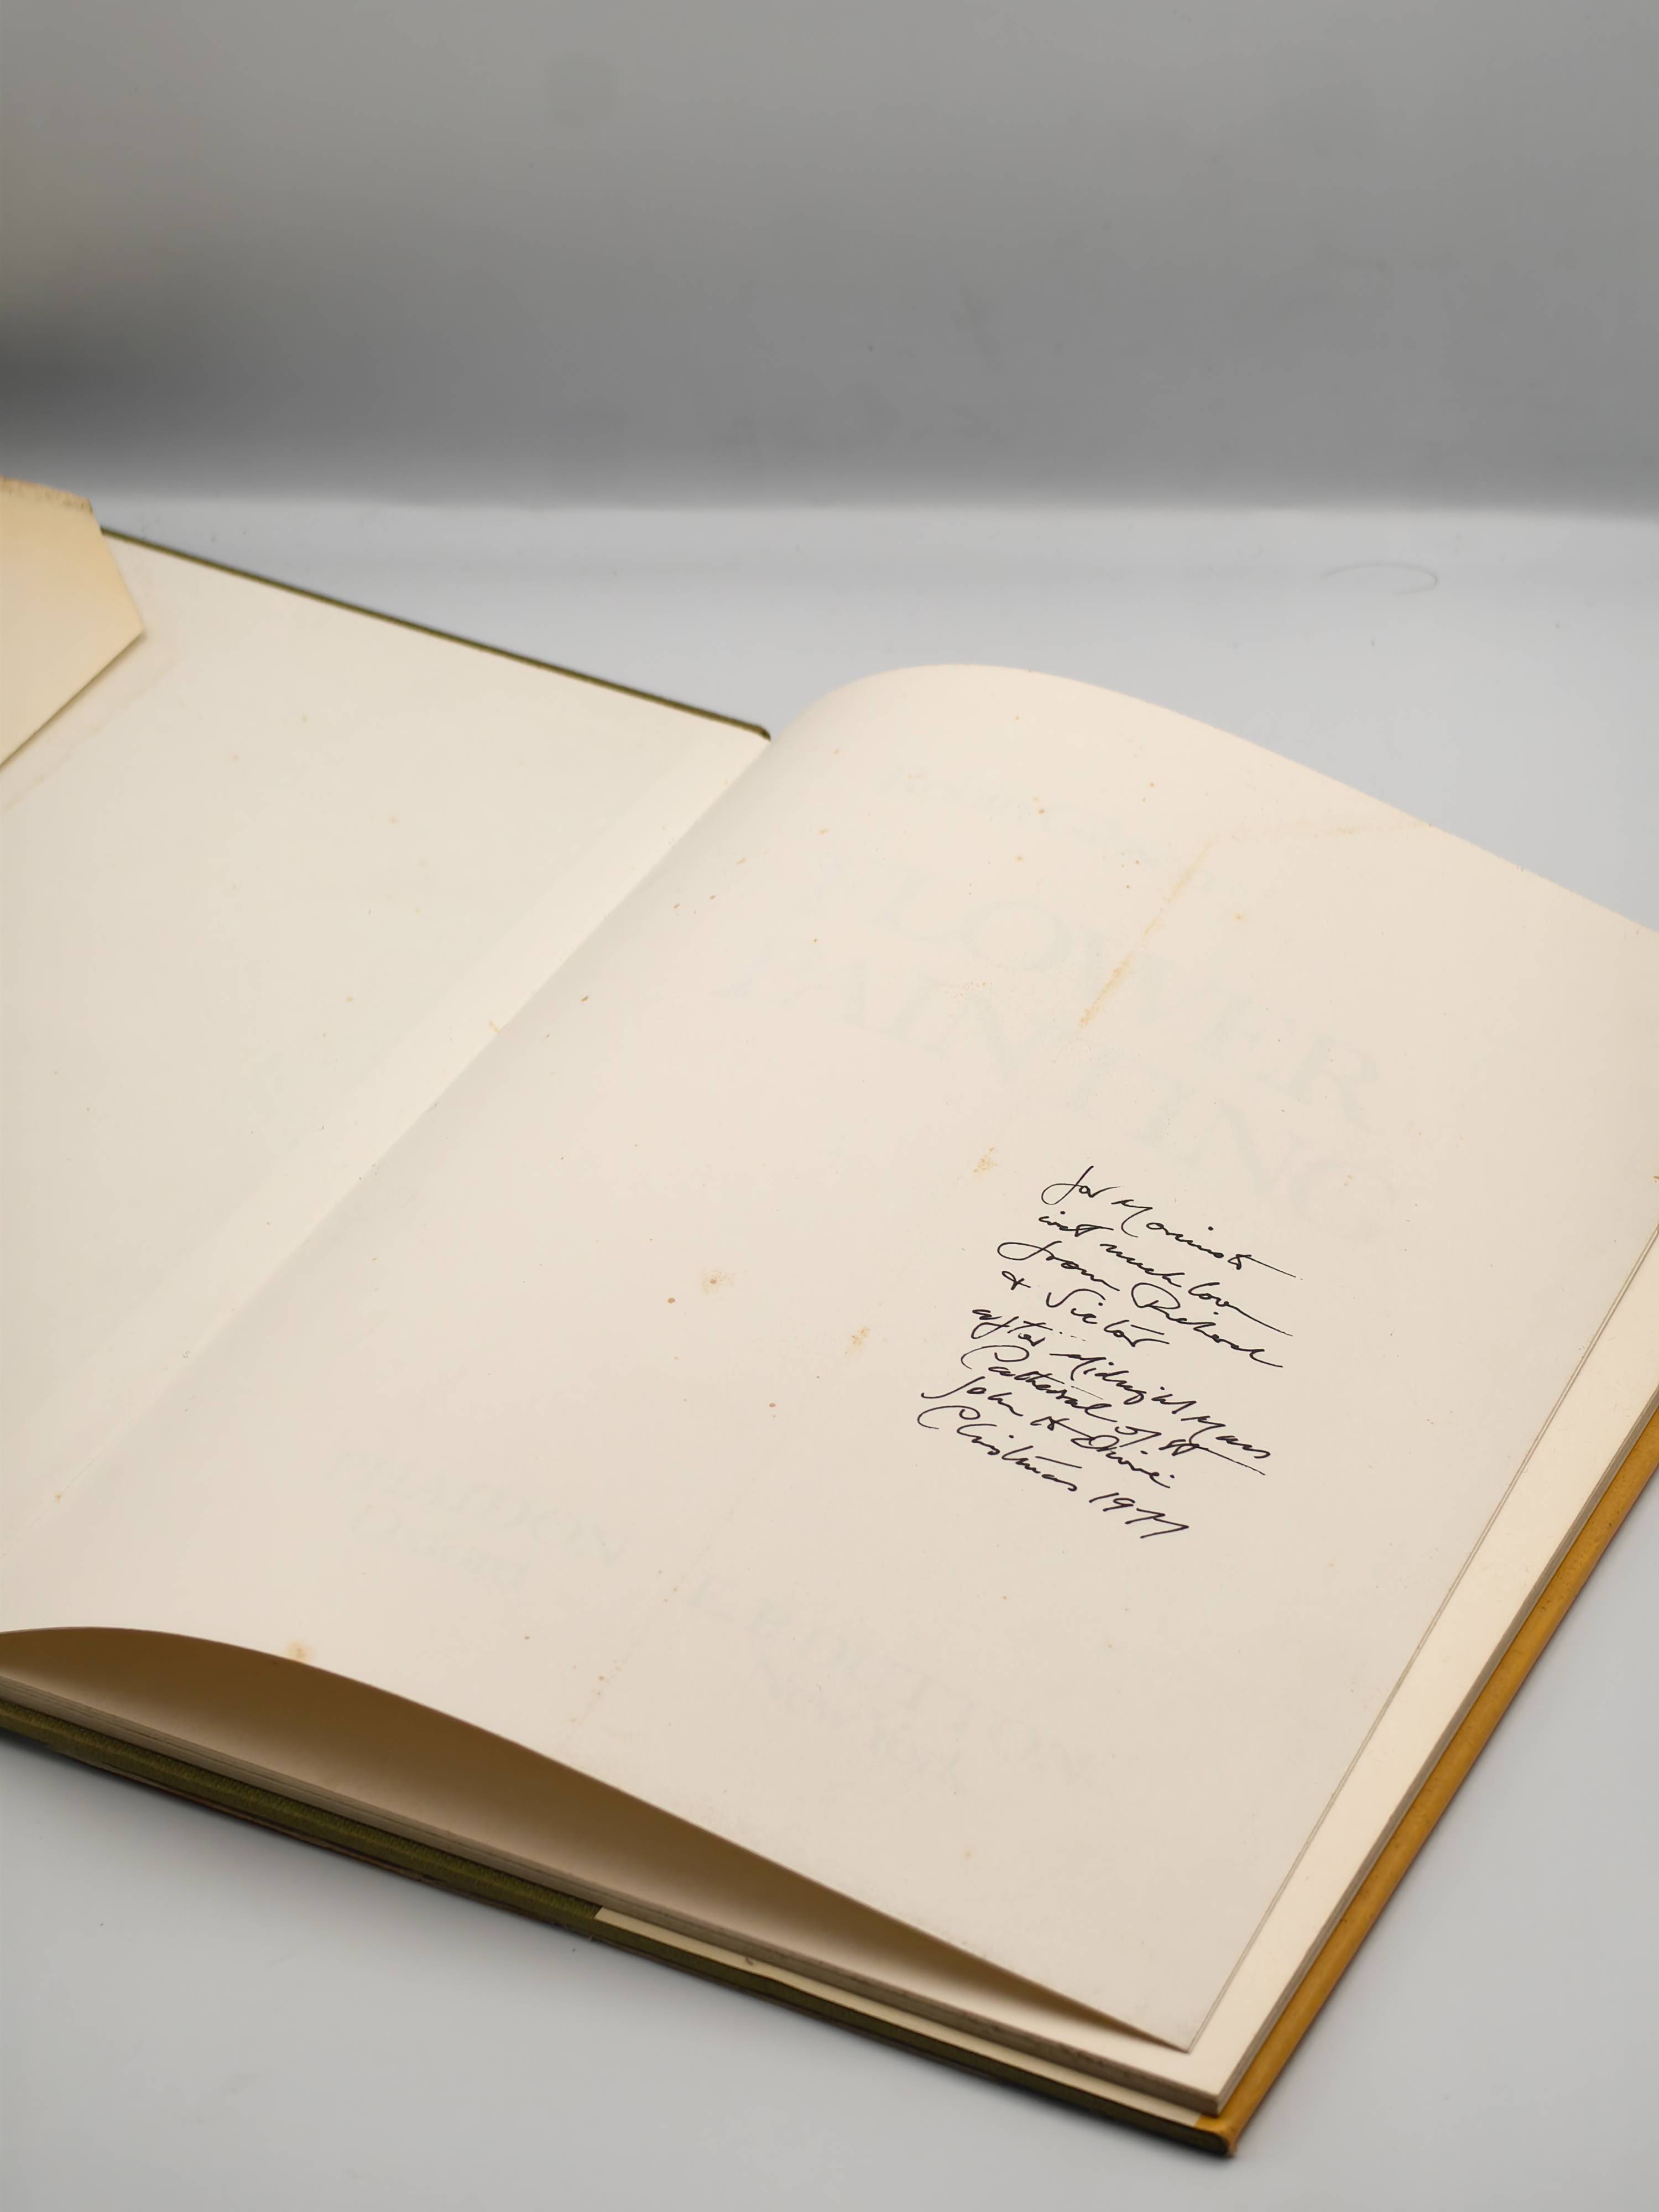 for
with much love
from Richard
& Victor
after Midnight Mass
Cathedral of St
John the Divine
Christmas 1977
FLOWER
PAINTING